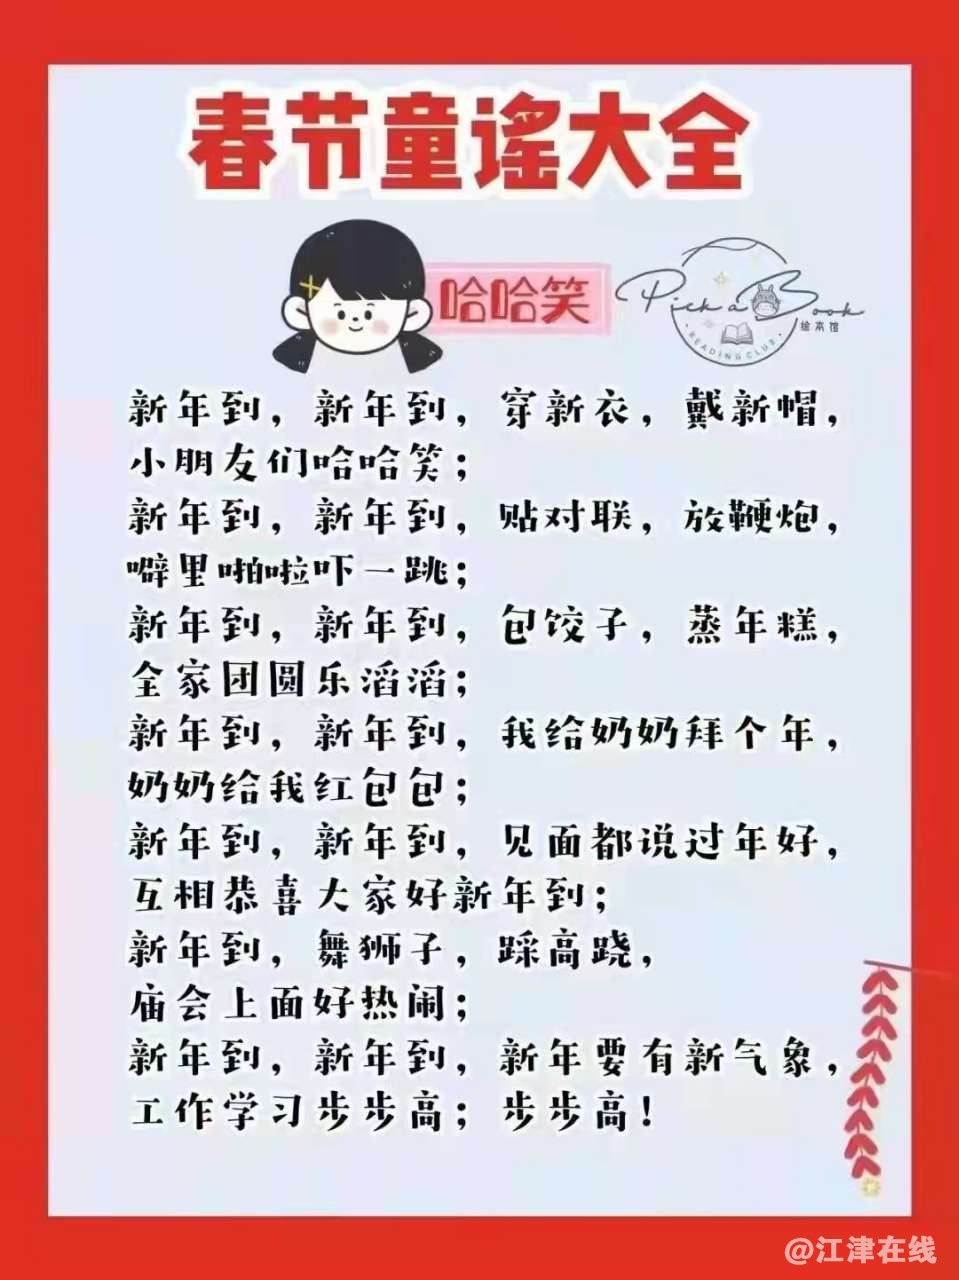 春节童谣大全
哈哈笑
Pick a Book
绘本馆
READING CLUB
新年到，新年到，穿新衣，戴新帽，
小朋友们哈哈笑；
新年到，新年到，贴对联，放鞭炮，
噼里啪啦吓一跳；
新年到，新年到，包饺子，蒸年糕，
全家团圆乐滔滔；
新年到，新年到，我给奶奶拜个年，
奶奶给我红包包；
新年到，新年到，见面都说过年好，
互相恭喜大家好新年到；
新年到，舞狮子，踩高跷，
庙会上面好热闹；
新年到，新年到，新年要有新气象，
工作学习步步高；步步高！
@江津在线